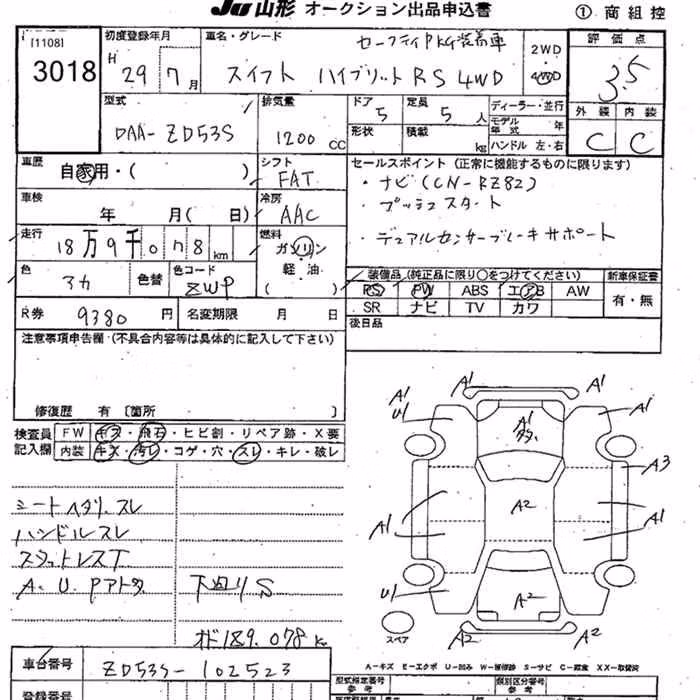 JU 山形 オークション出品申込書
① 商組控
[1108]
3018
初度登録年月
H 29年 7月
車名・グレード
セーフティPKG装着車
スイフト ハイブリットRS 4WD
2WD
4WD
評価点
3.5
外装 内装
C C
型式
DAA-ZD53S
排気量
1200 CC
ドア 5
定員 5 人
形状
積載 kg
ディーラー・並行
モデル年式 年
ハンドル 左・右
車歴
自家用・( )
シフト
FAT
車検
年 月( 日)
冷房
AAC
走行
18万9千078km
燃料
ガソリン
軽油
( )
セールスポイント (正常に機能するものに限ります)
・ナビ(CN-RZ82)
・プッシュスタート
・デュアルセンサーブレーキサポート
色
色替
色コード
ZWP
装備品 (純正品に限り○をつけてください)
PS PW ABS エアB AW
SR ナビ TV カワ
新車保証書
有・無
R券 9380円
名変期限 月 日
後日品
注意事項申告欄・(不具合内容等は具体的に記入して下さい)
修復歴 有 〔箇所 〕
検査員記入欄
FW キズ・飛石・ヒビ割・リペア跡・X要
内装 キズ・汚レ・コゲ・穴・スレ・キレ・破レ
シートヘタリ、スレ
ハンドルスレ
A、U、Pアト多
下回りS
オド189,078k
A1 A1 A1
U1 A1 A1
多
A3
A2
A1 A1
U1 A2
A2 A2
スペア
A-キズ E-エクボ U-凹み W-補修跡 S-サビ C-腐食 XX-取替済
車台番号 ZD53S-102523
登録番号
型式指定番号 参考
類別区分番号 参考